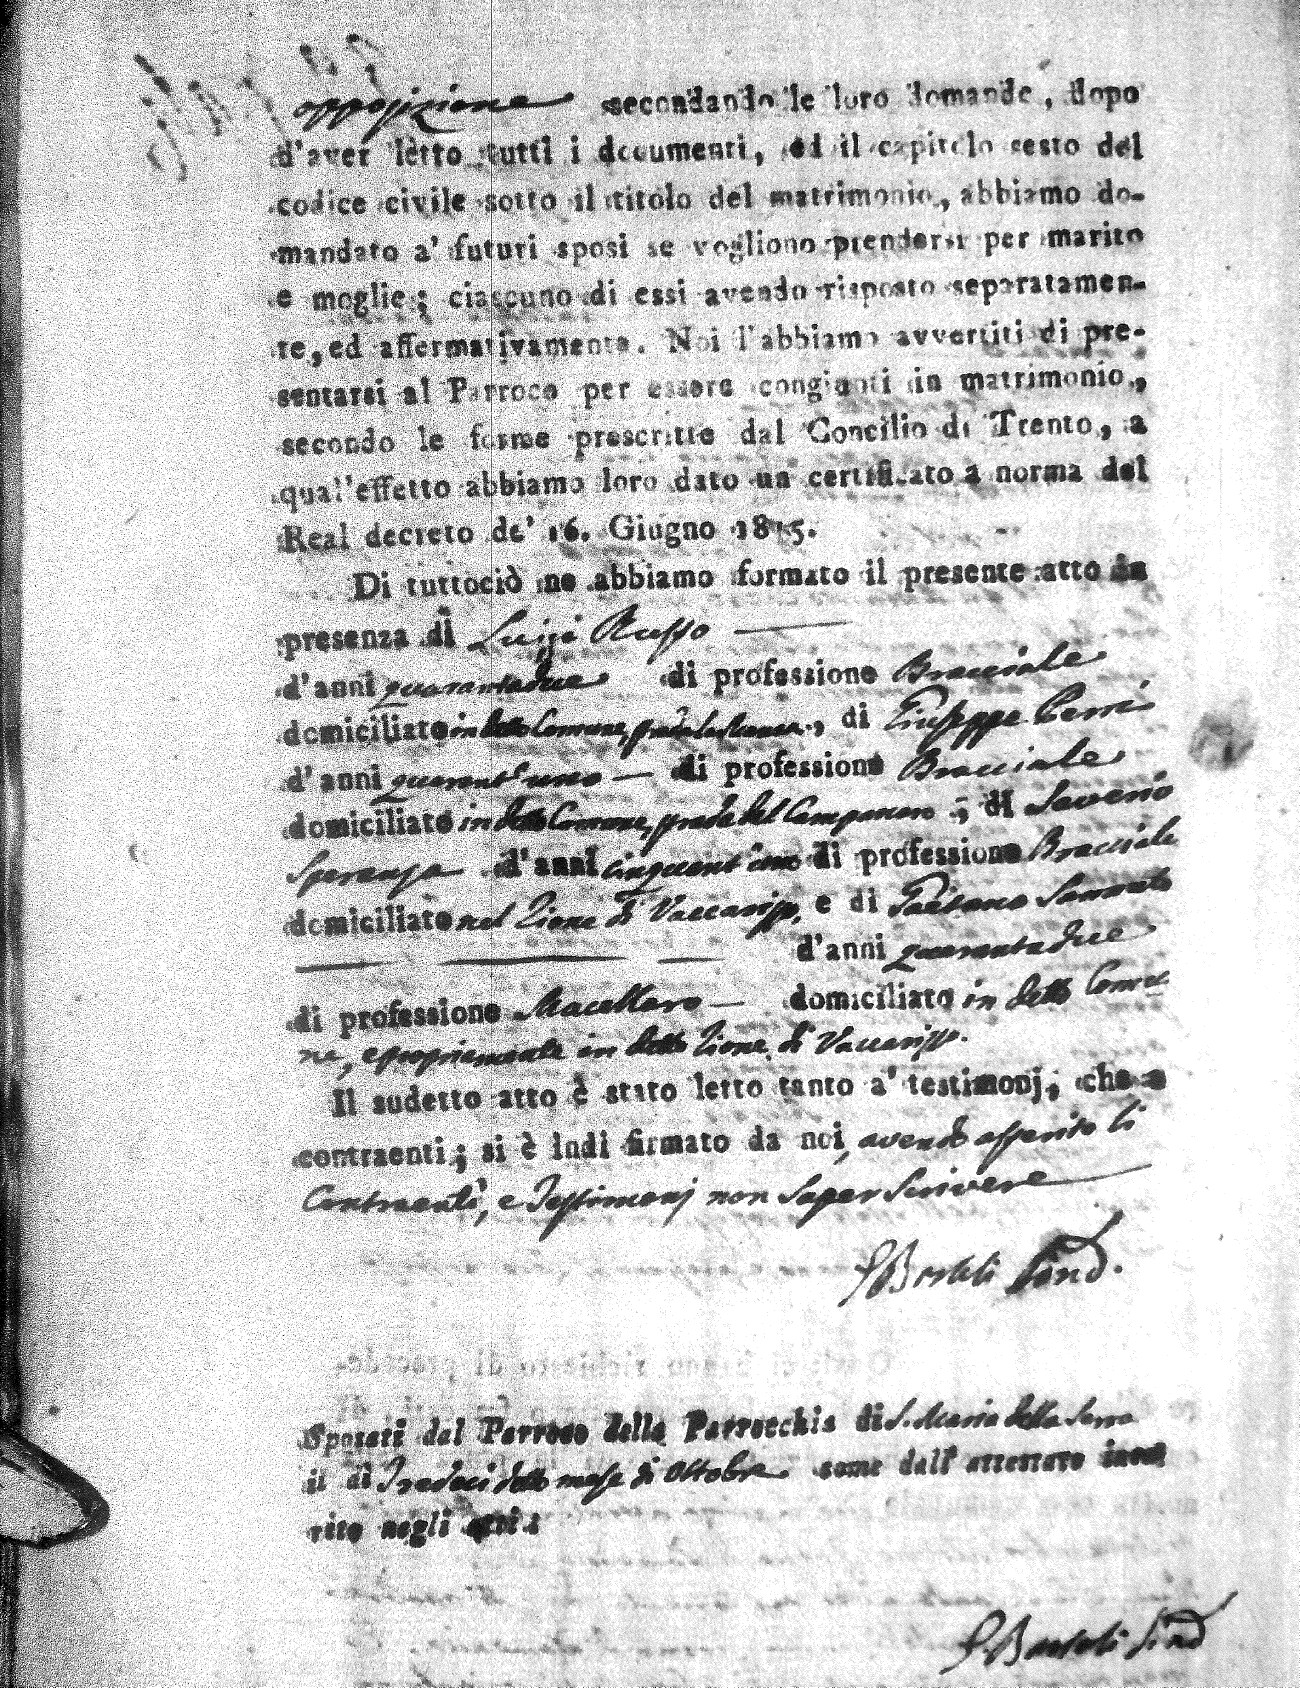 opposizione secondando le loro domande, dopo
d'aver letto tutti i documenti, ed il capitolo sesto del
codice civile sotto il titolo del matrimonio, abbiamo do-
mandato a' futuri sposi se vogliono prendersi per marito
e moglie; ciascuno di essi avendo risposto separatamen-
te, ed affermativamente. Noi l'abbiamo avvertiti di pre-
sentarsi al Parroco per essere congiunti in matrimonio,
secondo le forme prescritte dal Concilio di Trento, a
qual'effetto abbiamo loro dato un certificato a norma del
Real decreto de' 16. Giugno 1815.
Di tuttociò ne abbiamo formato il presente atto in
presenza di Luigi Russo
d'anni quarantadue di professione Bracciale
domiciliato in detto Comune, , di Giuseppe Perri
d'anni quarant'uno — di professione Bracciale
domiciliato in detto Comune, del Campanaro ; di Saverio
Speranza d'anni di professione Bracciale
domiciliato nel Rione di Vaccarizzo, e di Gaetano
d'anni quarantadue
di professione Macellaro — domiciliato in detto Comu-
ne, e propriamente in detto Rione di Vaccarizzo.
Il sudetto atto è stato letto tanto a' testimonj, che a
contraenti; si è indi firmato da noi, avendo asserito li
Contraenti, e Testimonj non saper scrivere
Bartoli Sind.
Sposati dal Parroco della Parrocchia di S. Maria della Serra
il dì Tredeci detto mese di Ottobre come dall' attestato inse-
rito negli atti.
Bartoli Sind